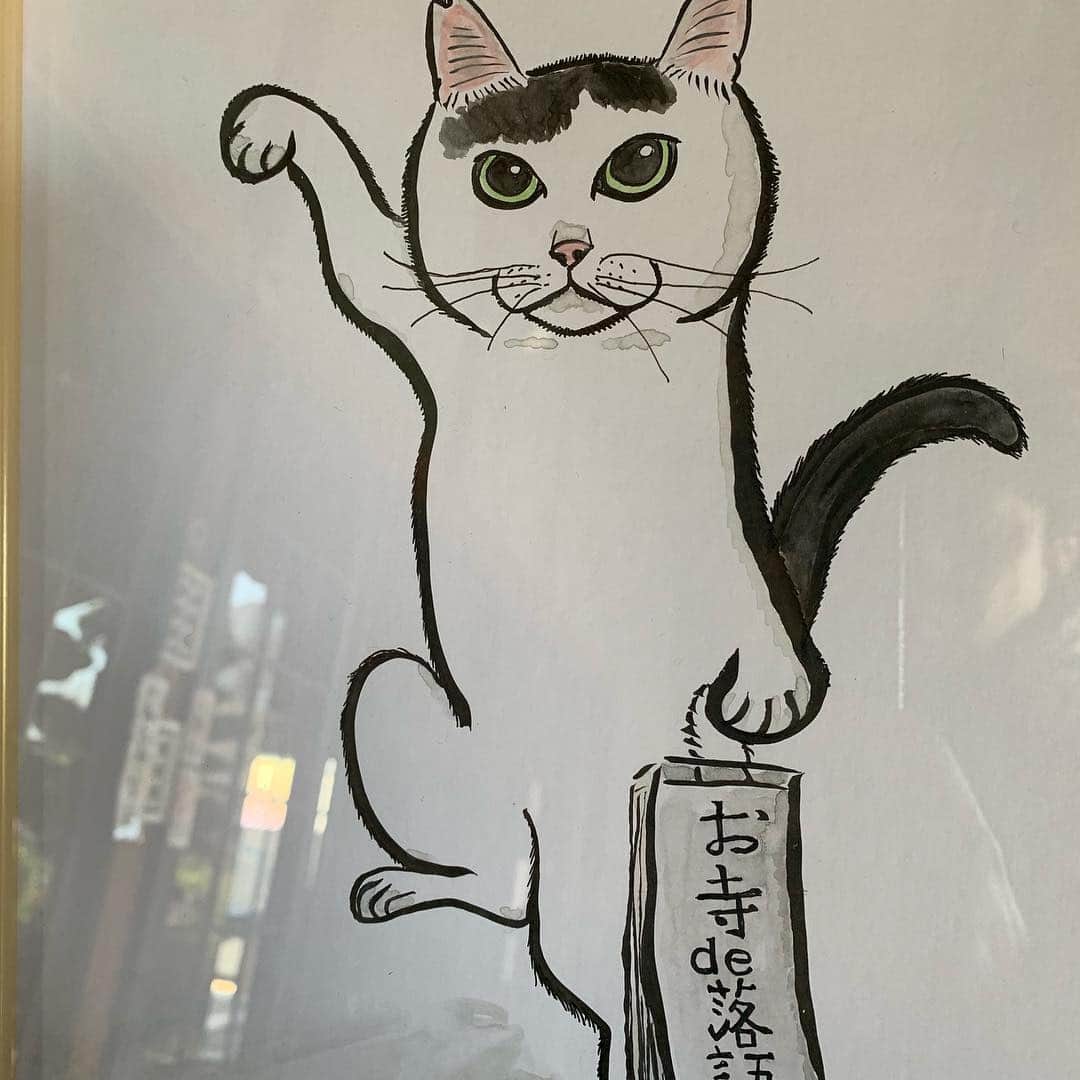 お寺de落語